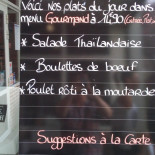 Voici nos plats du jour dans
menu Gourmand à 14,90 (Entrée, Plat
* Salade Thaïlandaise
* Boulettes de bœuf
* Poulet rôti à la moutarde
Suggestions à la Carte